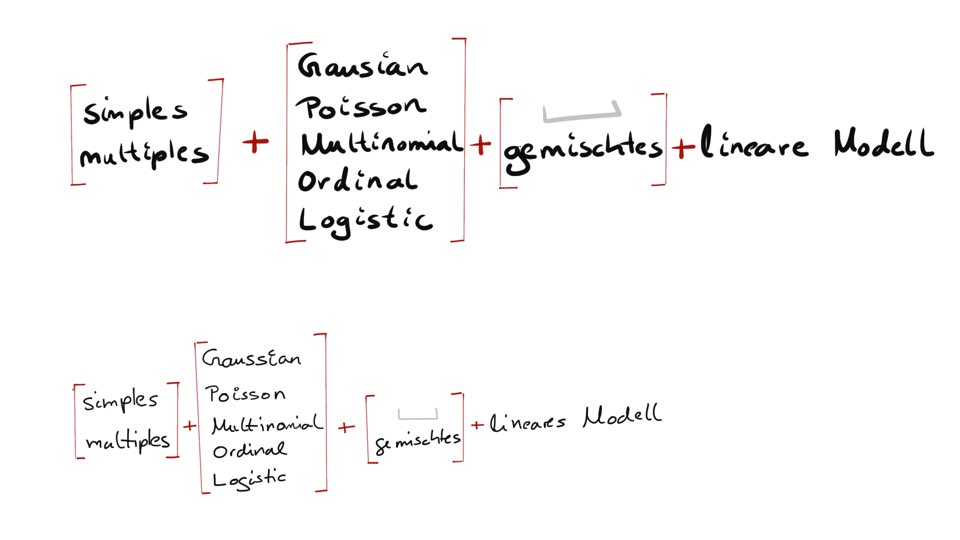 simples
multiples
+
Gausian
Poisson
Multinomial
Ordinal
Logistic
+
gemischtes
+ lineare Modell
simples
multiples
+
Gaussian
Poisson
Multinomial
Ordinal
Logistic
+
gemischtes
+ lineares Modell